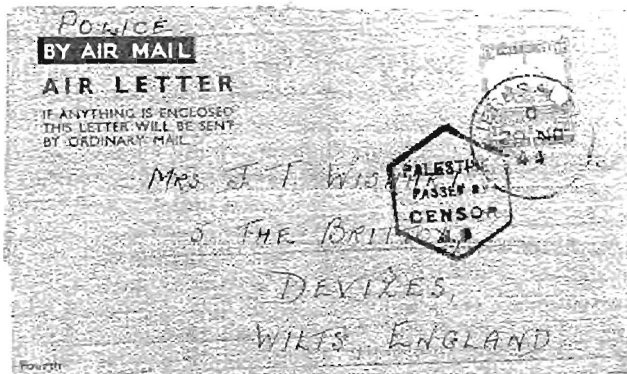 POLICE
BY AIR MAIL
AIR LETTER
IF ANYTHING IS ENCLOSED
THIS LETTER WILL BE SENT
BY ORDINARY MAIL
JERUSALEM
D
NO
44
PALESTINE
PASSED BY
CENSOR
MRS J. T.
THE
DEVIZES,
WILTS, ENGLAND
Fourth